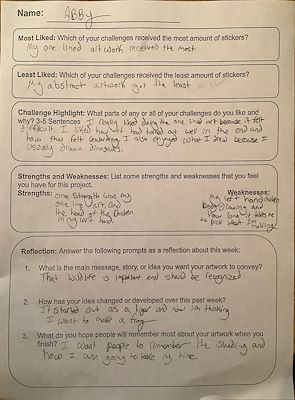 Name: ABBY
Most Liked: Which of your challenges received the most amount of stickers?
My one lined artwork received the most
Least Liked: Which of your challenges received the least amount of stickers?
My abstract artwork got the least
Challenge Highlight: What parts of any or all of your challenges do you like and
why? 3-5 Sentences I really liked doing the one lined art because it felt
difficult. I liked how it had turned out well in the end and
how that felt rewarding. I also enjoyed what I drew because I
usually drawn dinosaurs.
Strengths and Weaknesses: List some strengths and weaknesses that you feel
you have for this project.
Strengths: one strength was my
one line art, and
the head of the chicken
in my left hand.
Weaknesses:
My left hand chicken
body drawing and
how long it takes me
to pick what I'm
making
Reflection: Answer the following prompts as a reflection about this week:
1. What is the main message, story, or idea you want your artwork to convey?
That wildlife is important and should be recognized
2. How has your idea changed or developed over this past week?
It started out as a tiger and now im thinking
I want to make a frog
3. What do you hope people will remember most about your artwork when you
finish? I want people to remember the shading and
how I am going to take my time